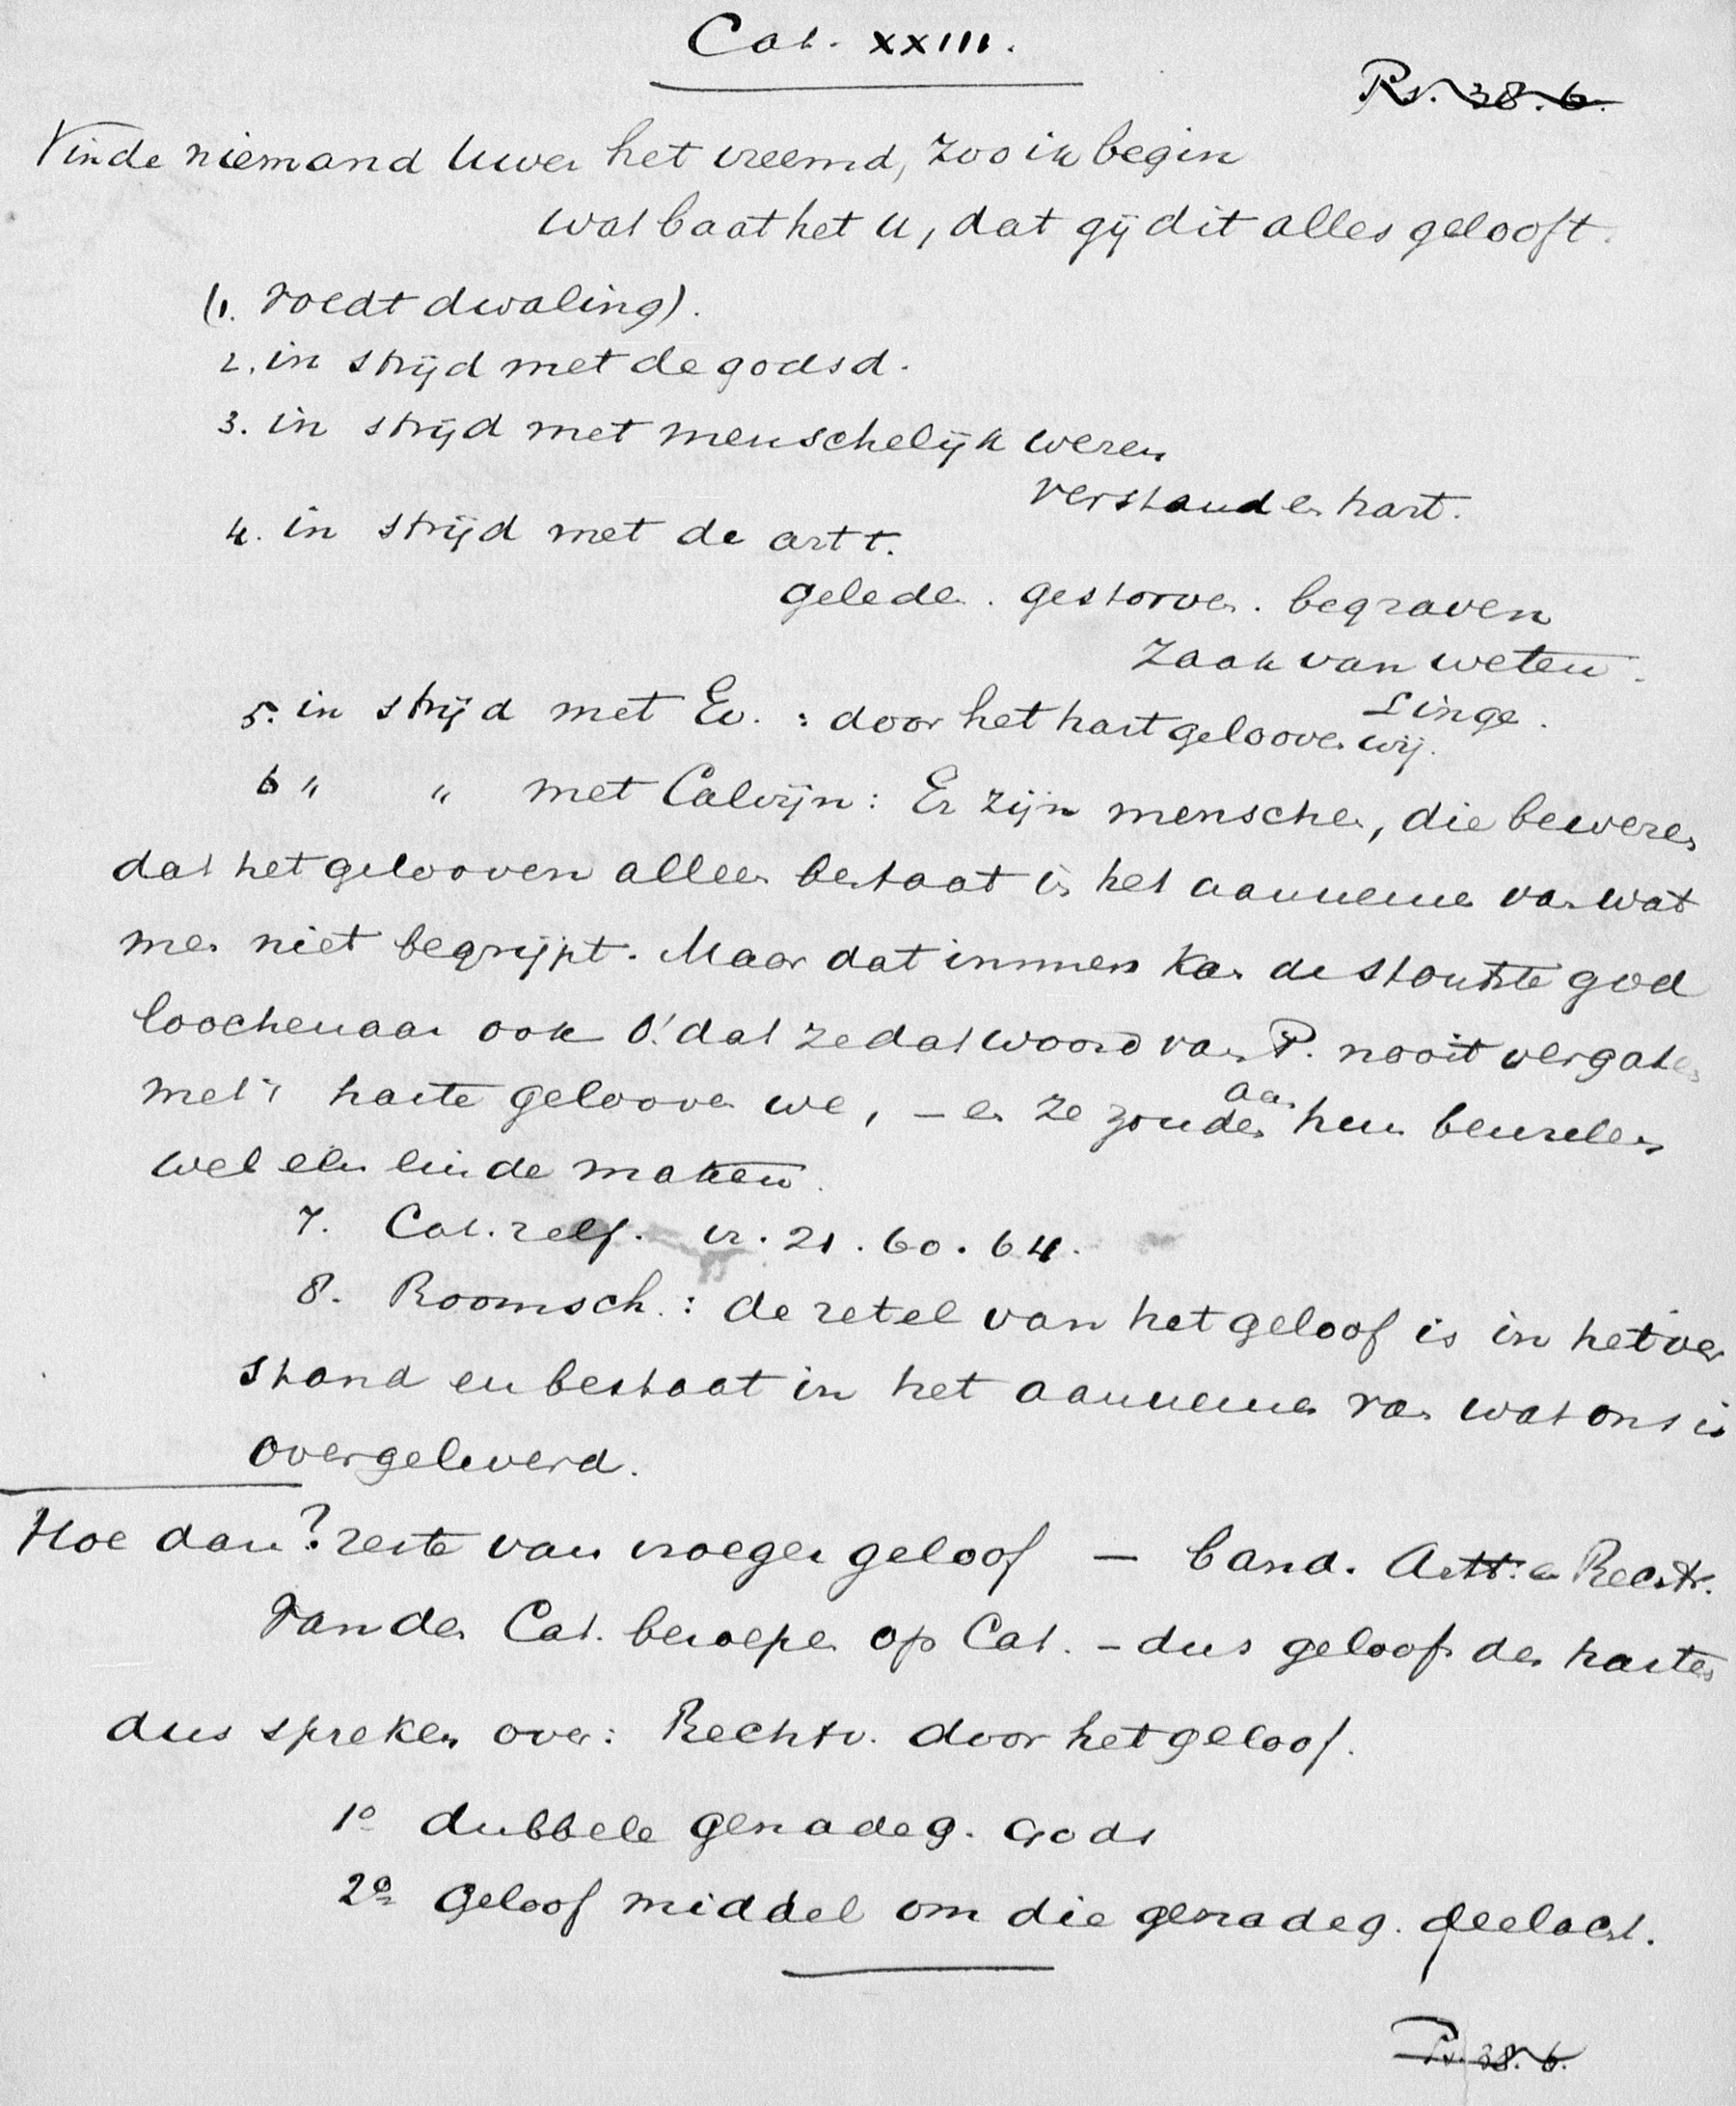 Cat. XXIII.
Ps. 38.6.
Vinde niemand Uwer het vreemd, zoo ik begin
wat baat het u, dat gij dit alles gelooft.
(1. voedt dwaling).
2. in strijd met de godsd.
3. in strijd met menschelijk wezen
verstand en hart.
4. in strijd met de artt.
geleden. gestorven. begraven
zaak van weten.
5. in strijd met Ev. : door het hart gelooven wij.
6 " " met Calvijn: Er zijn menschen, die beweren
dat het gelooven alleen bestaat in het aannemen van wat
men niet begrijpt. Maar dat immers kan de stoutste god
loochenaar ook O! dat ze dat woord van P. nooit vergaten
met 't harte gelooven we, – en ze zouden aan hun beuzelen
wel een einde maken.
7. Cat. zelf. vr. 21. 60. 64.
8. Roomsch.: de zetel van het geloof is in het ver
stand en bestaat in het aannemen van wat ons is
overgeleverd.
Hoe dan? reste van vroeger geloof – band. Artt. en Rechtv.
van den Cat. beroepen op Cat. – dus geloof des harten
dus spreken over: Rechtv. door het geloof.
1º dubbele genadeg. Gods
2º Geloof middel om die genadeg. deelacht.
Ps. 38. 6.